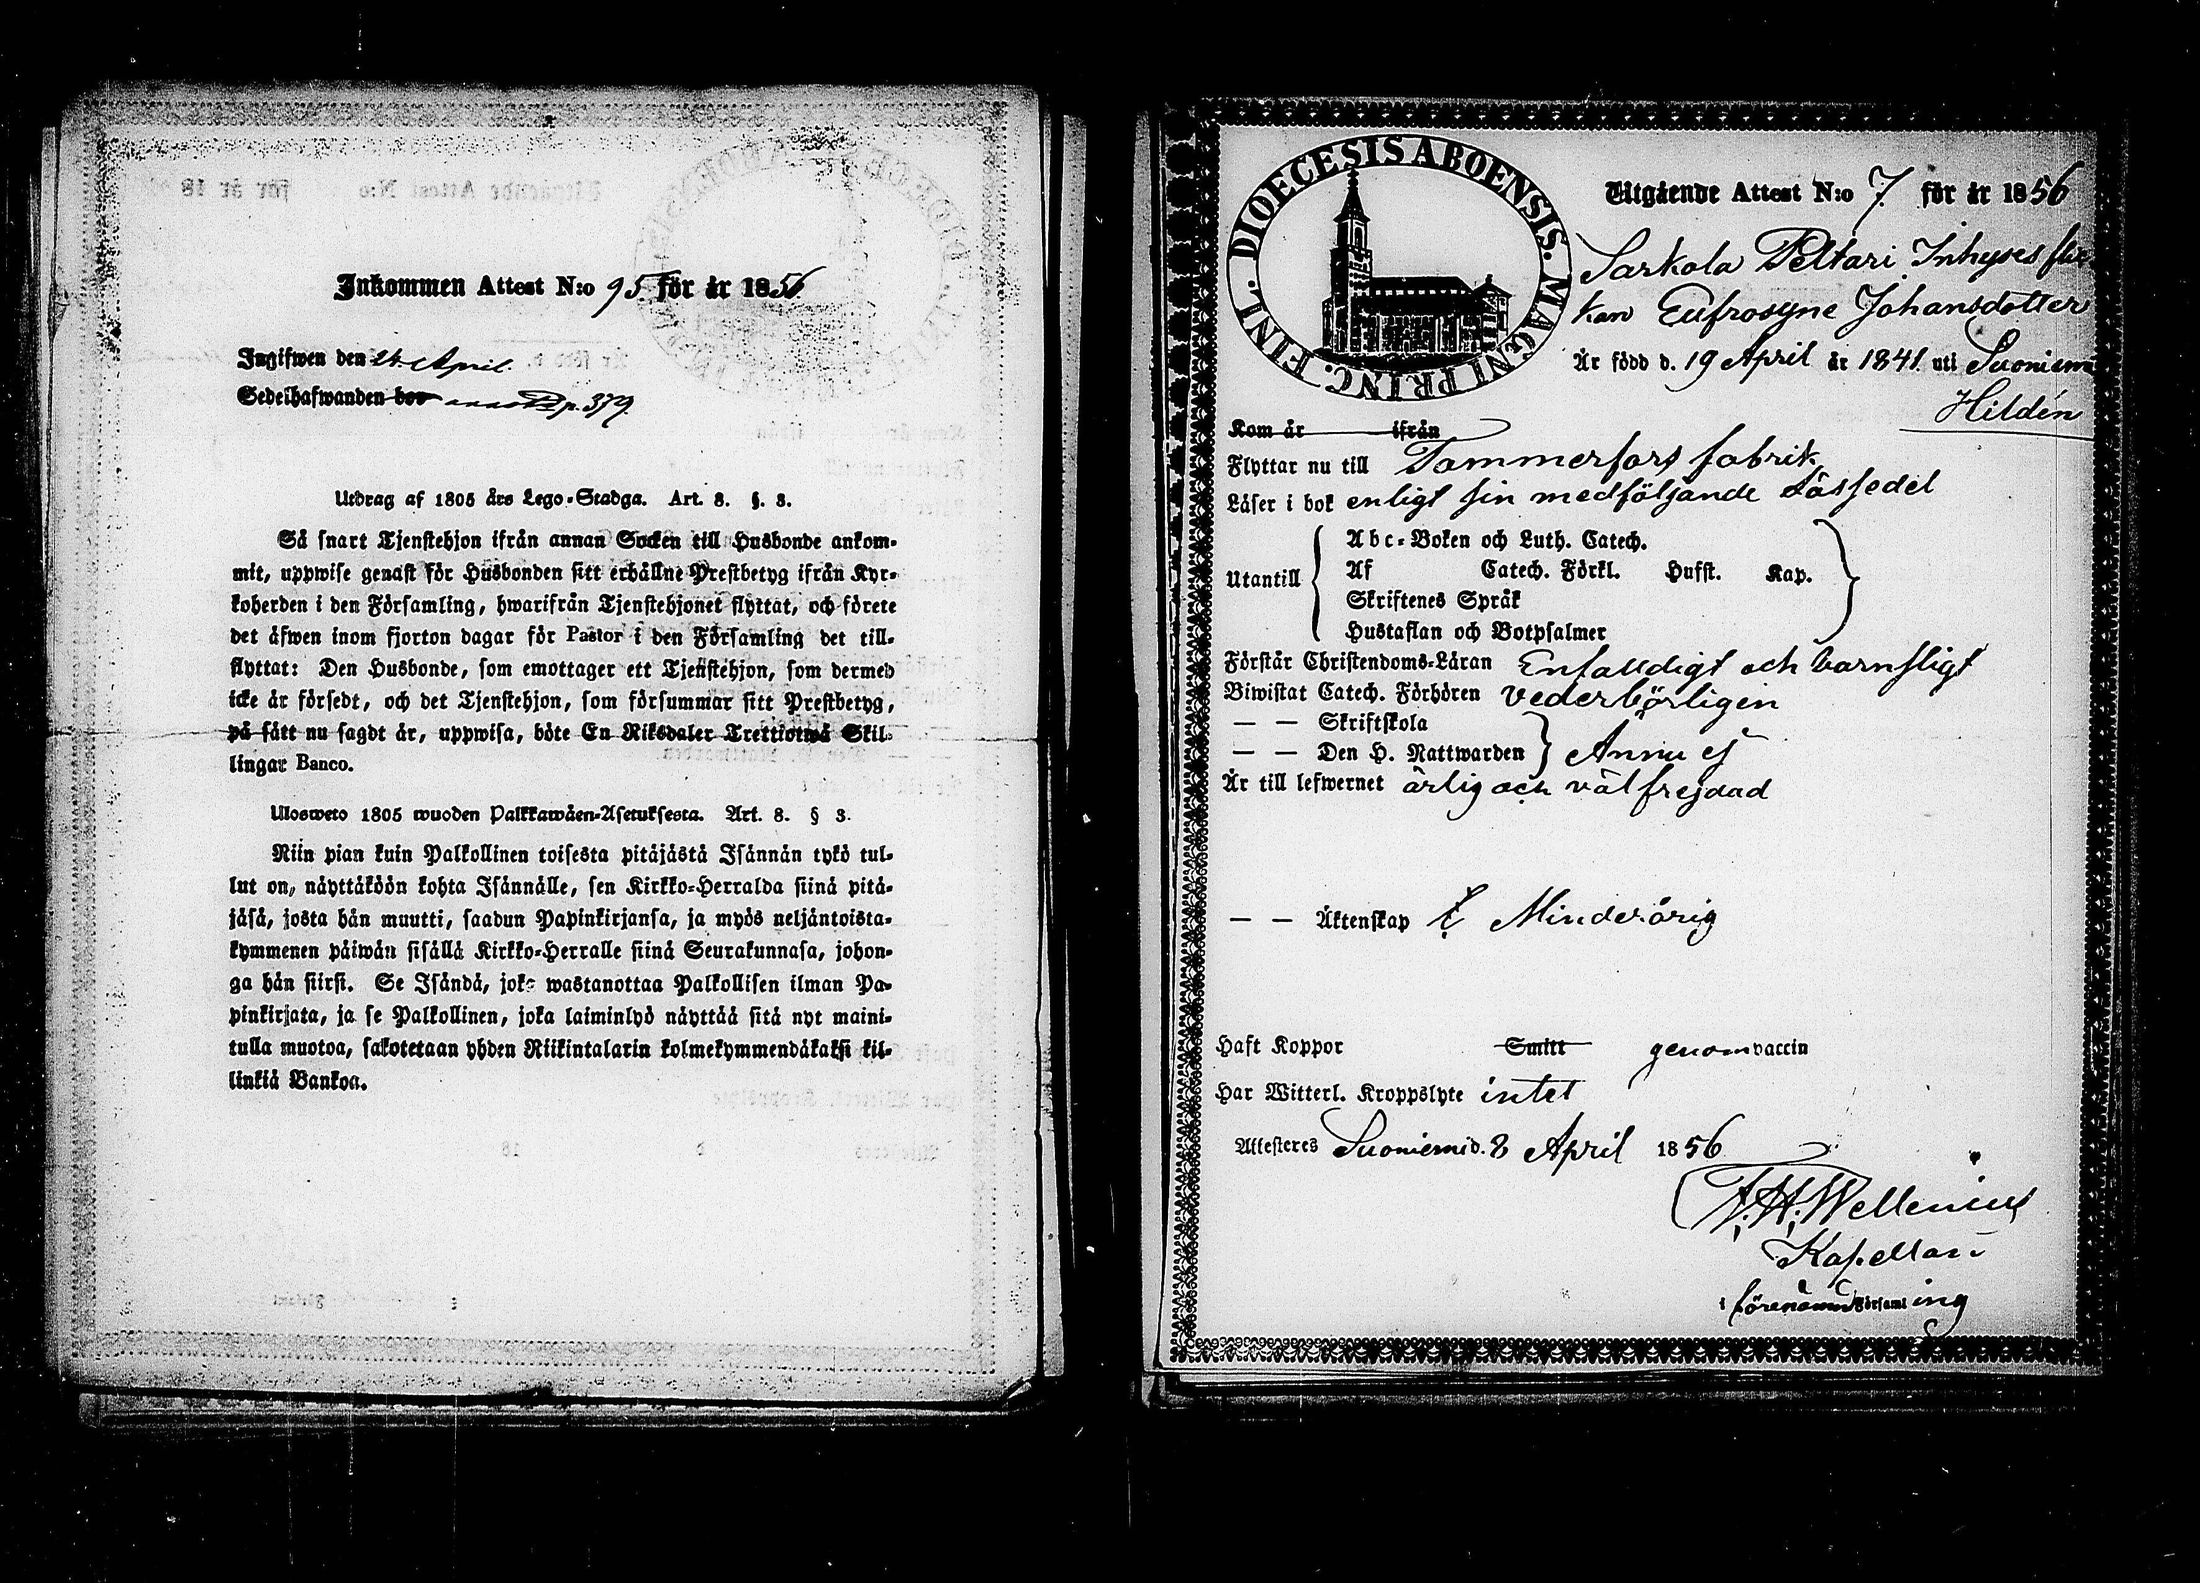 Inkommen Attest N:o 95. för år 1856
Ingifwen den 24. April.
Sedelhafwanden bor annot. p. 379
Utdrag af 1805 års Lego-Stadga. Art. 8. §. 3.
Så snart Tjenstehjon ifrån annan Socken till Husbonde ankom-
mit, uppwise genast för Husbonden sitt erhållne Prestbetyg ifrån Kyr-
koherden i den Församling, hwarifrån Tjenstehjonet flyttat, och förete
det äfwen inom fjorton dagar för Pastor i den Församling det till-
flyttat: Den Husbonde, som emottager ett Tjenstehjon, som dermed
icke är försedt, och det Tjenstehjon, som försummar sitt Prestbetyg,
på sätt nu sagdt är, uppwisa, böte En Riksdaler Trettiotwå Skil-
lingar Banco.
Ulosweto 1805 wuoden Palkkawäen-Asetuksesta. Art. 8. § 3.
Niin pian kuin Palkollinen toisesta pitäjästä Isännän tykö tul-
lut on, näyttäköön kohta Isännälle, sen Kirkko-Herralda siinä pitä-
jäsä, josta hän muutti, saadun Papinkirjansa, ja myös neljäntoista-
kymmenen päiwän sisällä Kirkko-Herralle siinä Seurakunnasa, johon-
ga hän siirsi. Se Isändä, joka wastanottaa Palkollisen ilman Pa-
pinkirjata, ja se Palkollinen, joka laiminlyö näyttää sitä nyt maini-
tulla muotoa, sakotetaan yhden Riikintalarin kolmekymmendäkaksi kil-
linkiä Bankoa.
DIOECESIS ABOENSIS. MAGNI PRINC. FINL.
Utgående Attest N:o 7. för år 1856
Sarkola Peltari Inhyses flic
kan Eufrosyne Johansdotter
Är född d. 19 April år 1841. uti Suoniemi
Hildén
Kom år ifrån
Flyttar nu till Tammerfors fabrik
Läser i bok enligt sin medföljande Läs sedel
Abc-Boken och Luth. Catech.
Utantill Af Catech. Förkl. Husst. Kap.
Skriftenes Språk
Hustaflan och Botpsalmer
Förstår Christendoms-Läran Enfaldigt och barnsligt
Biwistat Catech. Förhören vederbörligen
— — Skriftskola
— — Den H. Nattwarden Ännu ej
Är till lefwernet ärlig och välfrejdad
— — Äktenskap Minderårig
Haft Koppor Smitt genom vaccin
Har Witterl. Kroppslyte intet
Attesteres Suoniemi d. 8 April 1856
Wellenius
Kapellan
i förenämnd Församling